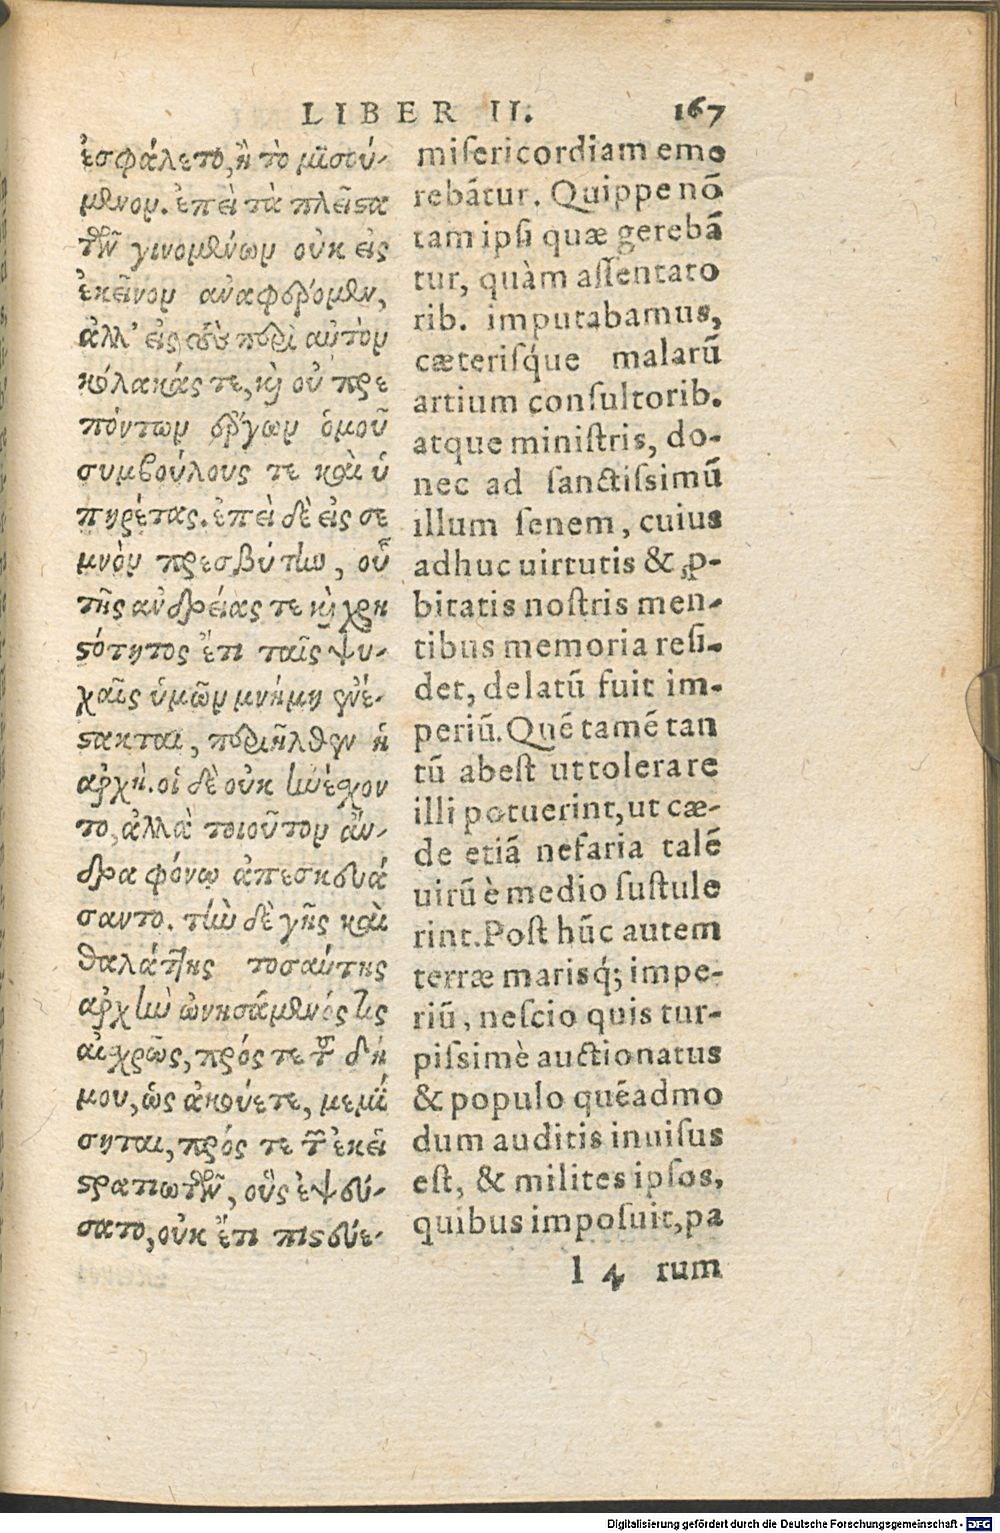 LIBER II. 167
ἐσφάλετο, ἢ τὸ μισού-
μενον. ἐπεὶ τὰ πλεῖστα
τῶν γινομένων οὐκ εἰς
ἐκεῖνον ἀναφέρομεν,
ἀλλ' εἰς τοὺς περὶ αὐτὸν
κόλακάς τε, καὶ οὐ πρε
πόντων ἔργων ὁμοῦ
συμβούλους τε καὶ ὑ
πηρέτας. ἐπεὶ δὲ εἰς σε
μνὸν πρεσβύτην, οὗ
τῆς ἀνδρείας τε καὶ χρη
στότητος ἔτι ταῖς ψυ-
χαῖς ὑμῶν μνήμη ἐνέ-
στακται, περιῆλθεν ἡ
ἀρχή. οἱ δὲ οὐκ ἠνέχον
το, ἀλλὰ τοιοῦτον ἄν-
δρα φόνῳ ἀπεσκευά
σαντο. τὴν δὲ γῆς καὶ
θαλάττης τοσαύτης
ἀρχὴν ὠνησάμενός τις
αἰσχρῶς, πρός τε τοῦ δή
μου, ὡς ἀκούετε, μεμί
σηται, πρός τε τῶν ἐκεῖ
στρατιωτῶν, οὓς ἐψεύ-
σατο, οὐκ ἔτι πιστεύε-
miſericordiam emo
rebātur. Quippe nō
tam ipſi quæ gerebā
tur, quàm aſſentato
rib. imputabamus,
cæteriſq́ue malarū
artium conſultorib.
atque miniſtris, do-
nec ad ſanctiſsimū
illum ſenem, cuius
adhuc uirtutis & ꝓ-
bitatis noſtris men-
tibus memoria reſi-
det, delatū fuit im-
periū. Quē tamē tan
tū abeſt ut tolerare
illi potuerint, ut cæ-
de etiā nefaria talē
uirū è medio ſuſtule
rint. Poſt hūc autem
terræ marisq́; impe-
riū, neſcio quis tur-
piſsimè auctionatus
& populo quēadmo
dum auditis inuiſus
eſt, & milites ipſos,
quibus impoſuit, pa
l 4 rum
Digitalisierung gefördert durch die Deutsche Forschungsgemeinschaft - DFG